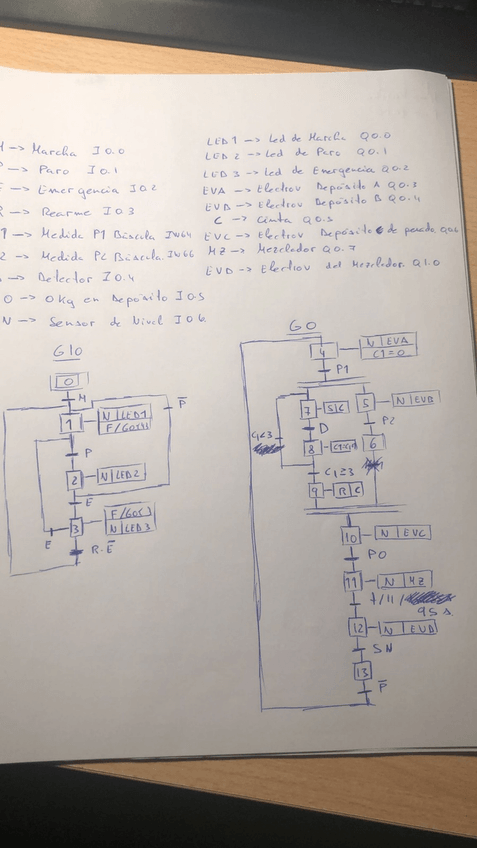 M -> Marcha I0.0
P -> Paro I0.1
E -> Emergencia I0.2
R -> Rearme I0.3
P1 -> Medida P1 Báscula IW64
P2 -> Medida P2 Báscula IW66
-> Detector I0.4
P0 -> 0kg en Depósito I0.5
SN -> Sensor de Nivel I0.6
LED1 -> Led de Marcha Q0.0
LED2 -> Led de Paro Q0.1
LED3 -> Led de Emergencia Q0.2
EVA -> Electrov Depósito A Q0.3
EVB -> Electrov Depósito B Q0.4
C -> Cinta Q0.5
EVC -> Electrov Depósito de pesado Q0.6
MZ -> Mezclador Q0.7
EVD -> Electrov del Mezclador Q1.0
G10
0
M
1
N LED1
F/G0{4}
P̅
P
2
N LED2
E
3
F/G0{}
N LED3
E
R·E̅
G0
4
N EVA
C1=0
P1
7
S C
5
N EVB
D
P2
C1<3
8
C1=C1+1
6
C1≥3
9
R C
10
N EVC
P0
11
N MZ
t/11/
95s
12
N EVD
SN
13
P̅